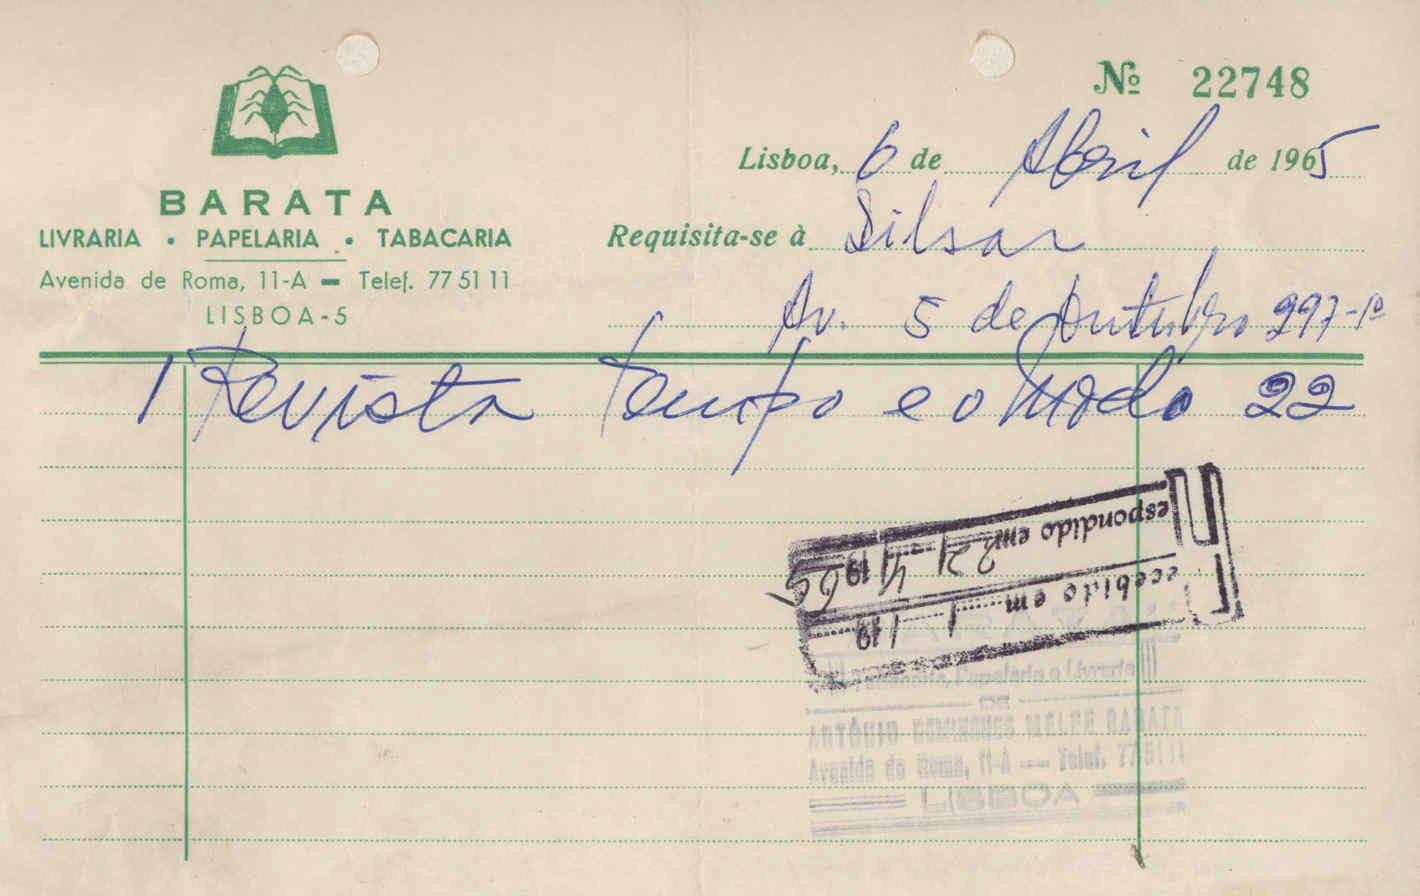 Nº 22748
Lisboa, 6 de Abril de 1965
BARATA
LIVRARIA • PAPELARIA • TABACARIA
Avenida de Roma, 11-A — Telef. 77 51 11
LISBOA-5
Requisita-se à Dilsar
Av. 5 de Outubro 297-1º
1 Revista Tempo e o Modo 22
espondido em 22 / 4 / 1965
ecebido em / / 19
Papelaria e Livraria
DE
ANTÓNIO DOMINGUES MELPE BARATA
Avenida de Roma, 11-A — Telef. 77 51 11
LISBOA